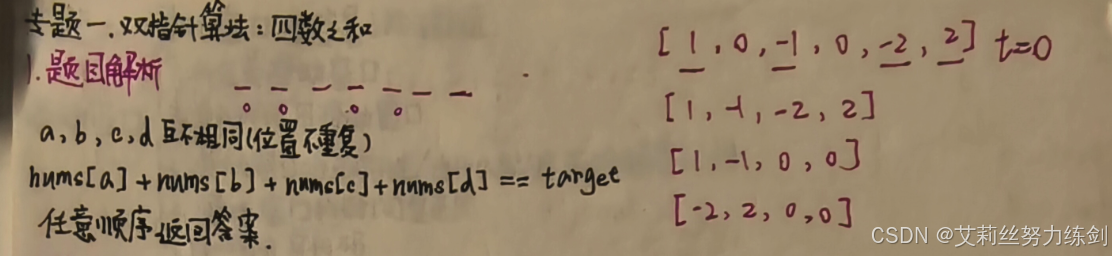 专题一.双指针算法:四数之和
1.题目解析
a,b,c,d互不相同(位置不重复)
nums[a]+nums[b]+nums[c]+nums[d]==target
任意顺序返回答案.
[1,0,-1,0,-2,2] t=0
[1,-1,-2,2]
[1,-1,0,0]
[-2,2,0,0]
CSDN @艾莉丝努力练剑